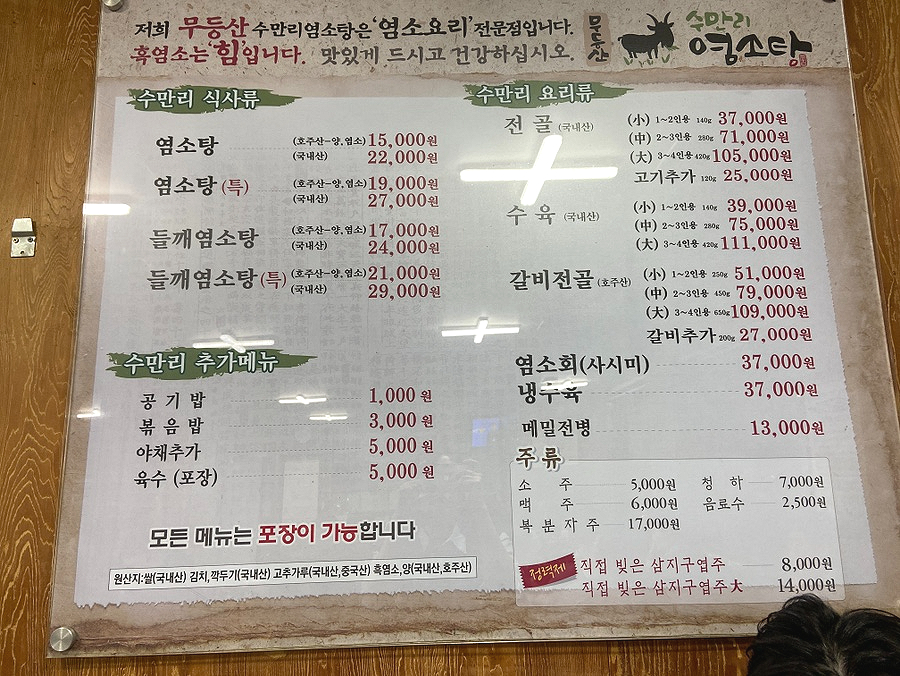 저희 무등산 수만리염소탕은 '염소요리' 전문점입니다.
흑염소는 '힘'입니다. 맛있게 드시고 건강하십시오.
무등산
수만리
염소탕
수만리 식사류
염소탕 (호주산-양,염소) 15,000원
(국내산) 22,000원
염소탕(특) (호주산-양,염소) 19,000원
(국내산) 27,000원
들깨염소탕 (호주산-양,염소) 17,000원
(국내산) 24,000원
들깨염소탕(특) (호주산-양,염소) 21,000원
(국내산) 29,000원
수만리 추가메뉴
공기밥 1,000원
볶음밥 3,000원
야채추가 5,000원
육수 (포장) 5,000원
모든 메뉴는 포장이 가능합니다
원산지:쌀(국내산) 김치,깍두기(국내산) 고추가루(국내산,중국산) 흑염소,양(국내산,호주산)
수만리 요리류
전골 (국내산) (小) 1~2인용 140g 37,000원
(中) 2~3인용 280g 71,000원
(大) 3~4인용 420g 105,000원
고기추가 120g 25,000원
수육 (국내산) (小) 1~2인용 140g 39,000원
(中) 2~3인용 280g 75,000원
(大) 3~4인용 420g 111,000원
갈비전골 (호주산) (小) 1~2인용 250g 51,000원
(中) 2~3인용 450g 79,000원
(大) 3~4인용 650g 109,000원
갈비추가 200g 27,000원
염소회(사시미) 37,000원
냉수육 37,000원
메밀전병 13,000원
주류
소주 5,000원 청하 7,000원
맥주 6,000원 음료수 2,500원
복분자주 17,000원
정력제 직접 빚은 삼지구엽주 8,000원
직접 빚은 삼지구엽주大 14,000원